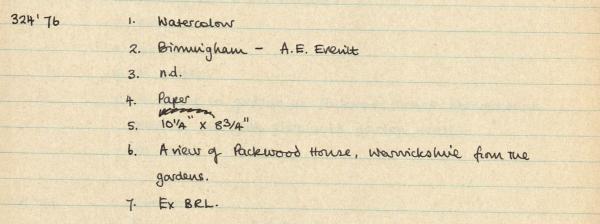 324'76 1. Watercolour
2. Birmingham - A.E. Everitt
3. n.d.
4. Paper
5. 10 1/4" x 8 3/4"
6. A view of Packwood House, Warwickshire from the
gardens.
7. Ex BRL.